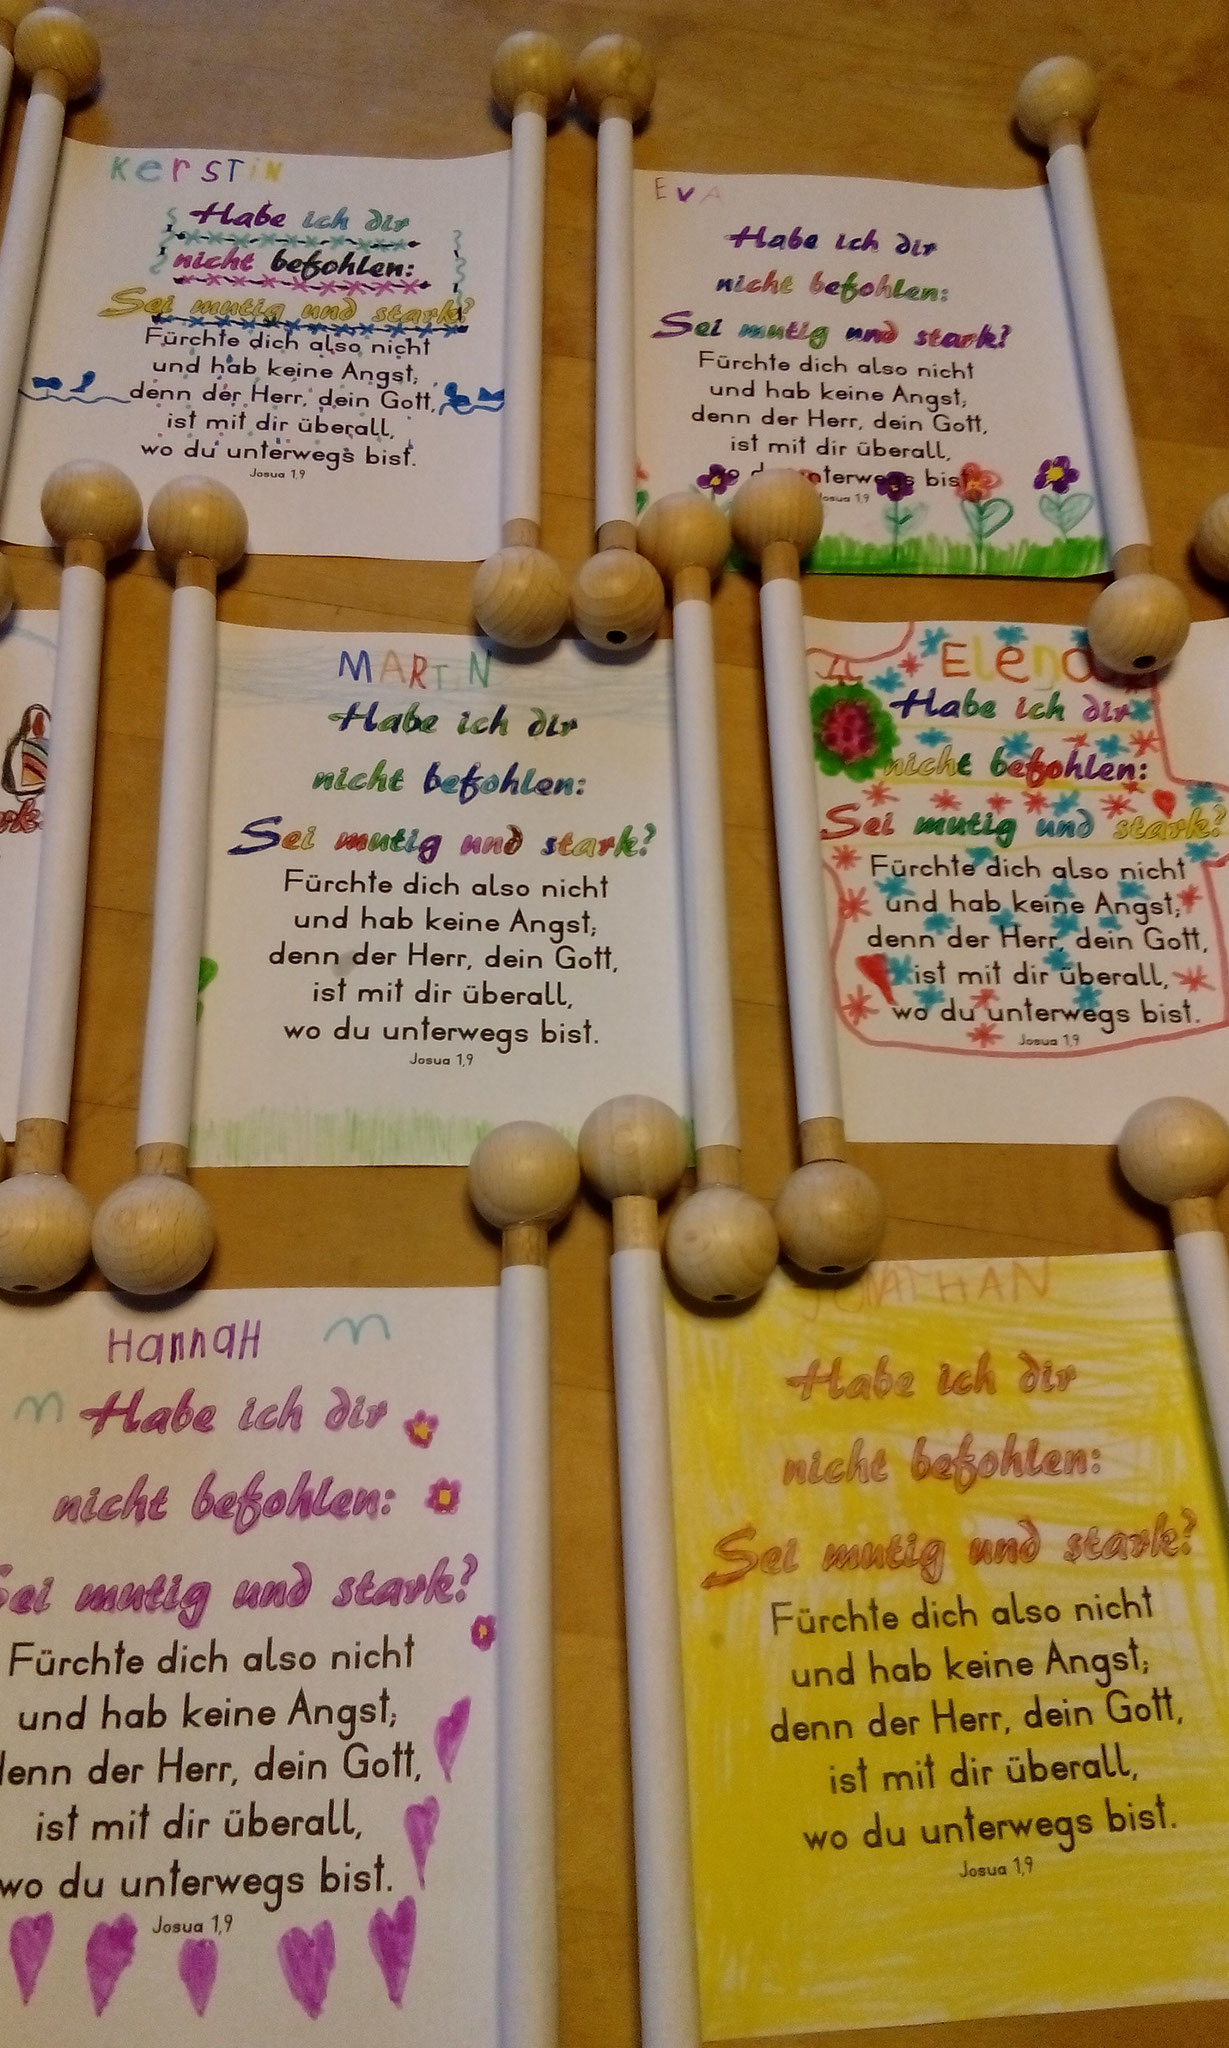 KerSTiN
Habe ich dir
nicht befohlen:
Sei mutig und stark?
Fürchte dich also nicht
und hab keine Angst;
denn der Herr, dein Gott,
ist mit dir überall,
wo du unterwegs bist.
Josua 1,9
EVA
Habe ich dir
nicht befohlen:
Sei mutig und stark?
Fürchte dich also nicht
und hab keine Angst;
denn der Herr, dein Gott,
ist mit dir überall,
wo du unterwegs bist.
Josua 1,9
MARTiN
Habe ich dir
nicht befohlen:
Sei mutig und stark?
Fürchte dich also nicht
und hab keine Angst;
denn der Herr, dein Gott,
ist mit dir überall,
wo du unterwegs bist.
Josua 1,9
Elena
Habe ich dir
nicht befohlen:
Sei mutig und stark?
Fürchte dich also nicht
und hab keine Angst;
denn der Herr, dein Gott,
ist mit dir überall,
wo du unterwegs bist.
Josua 1,9
HannaH
Habe ich dir
nicht befohlen:
Sei mutig und stark?
Fürchte dich also nicht
und hab keine Angst;
denn der Herr, dein Gott,
ist mit dir überall,
wo du unterwegs bist.
Josua 1,9
JONATHAN
Habe ich dir
nicht befohlen:
Sei mutig und stark?
Fürchte dich also nicht
und hab keine Angst;
denn der Herr, dein Gott,
ist mit dir überall,
wo du unterwegs bist.
Josua 1,9